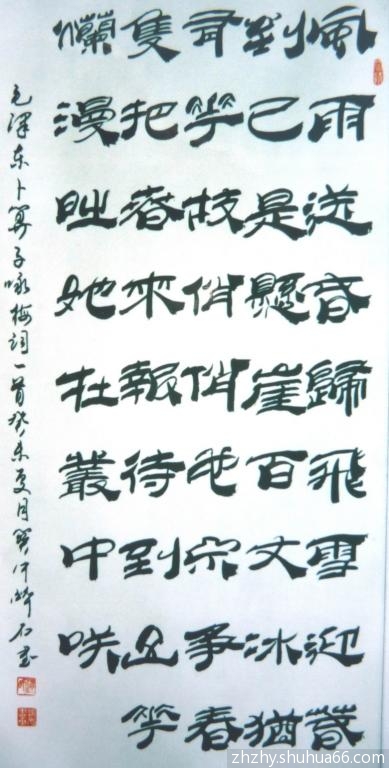 風雨送春歸飛雪迎春
到已是懸崖百丈冰猶
有花枝俏俏也不爭春
隻把春來報待到山花
爛漫時她在叢中咲
毛澤东卜算子咏梅詞一首癸未夏月石書
zhzhy.shuhua66.com